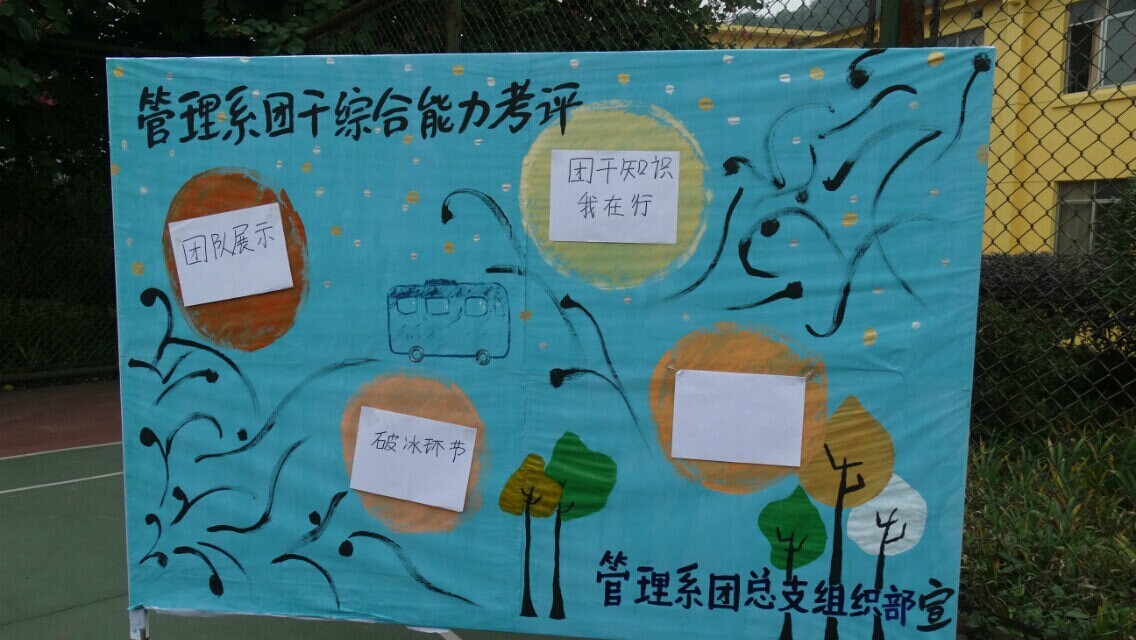 管理系团干综合能力考评
团干知识
我在行
团队展示
破冰环节
管理系团总支组织部宣